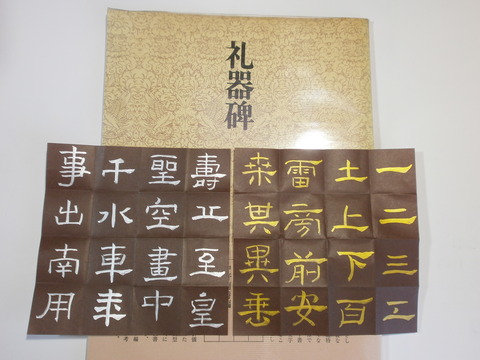 礼器碑
一二三工
土上下百
雷旁前安
桒其異
壽正至皇
聖空畫中
千水車来
事出南用